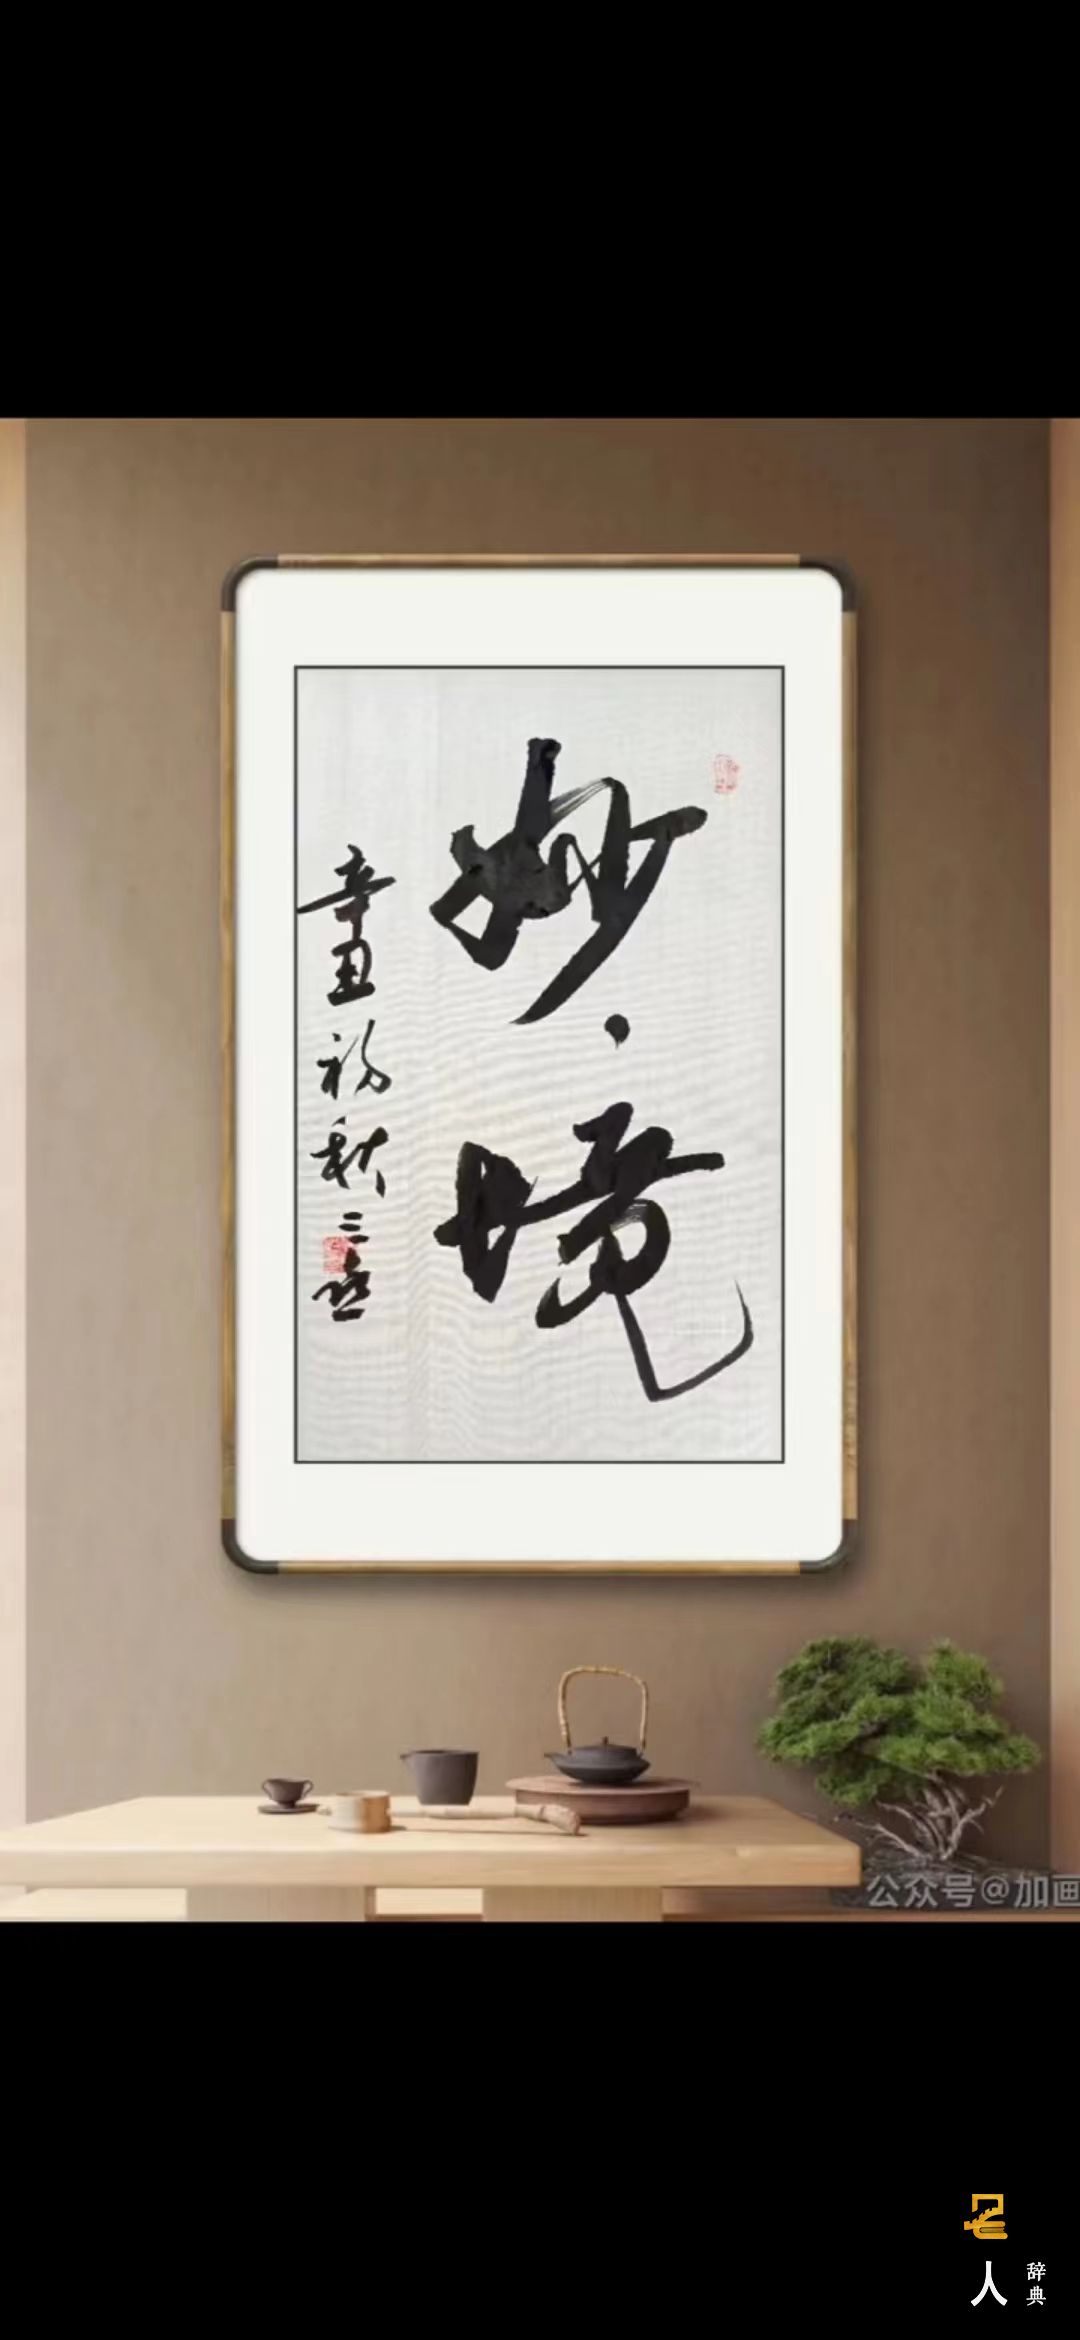 妙境
辛丑初秋三
公众号@加画
人
辞典